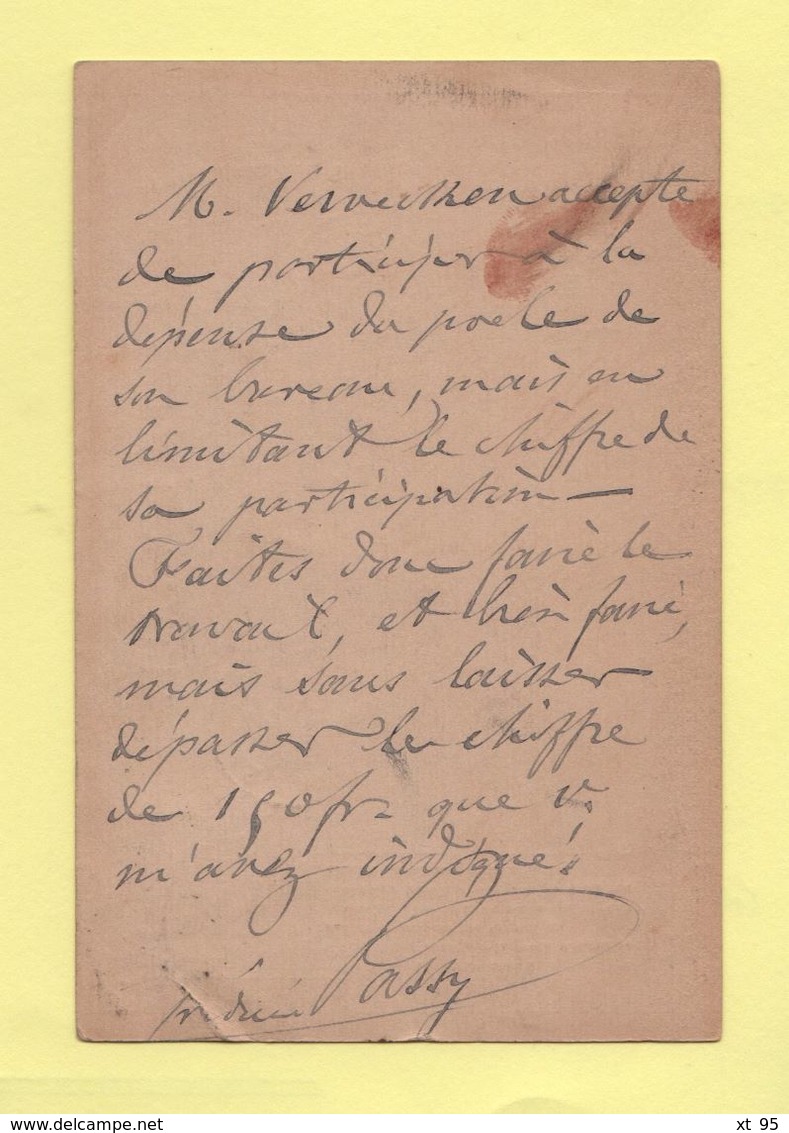 M. Vervecken accepte
de participer à la
dépense du poele de
son bureau, mais en
limitant le chiffre de
sa participation —
Faites donc faire le
travail, et bien faire,
mais sans laisser
dépasser le chiffre
de 150 frs que v.
m'avez indiqué.
Frédéric Passy
delcampe.net
xt 95